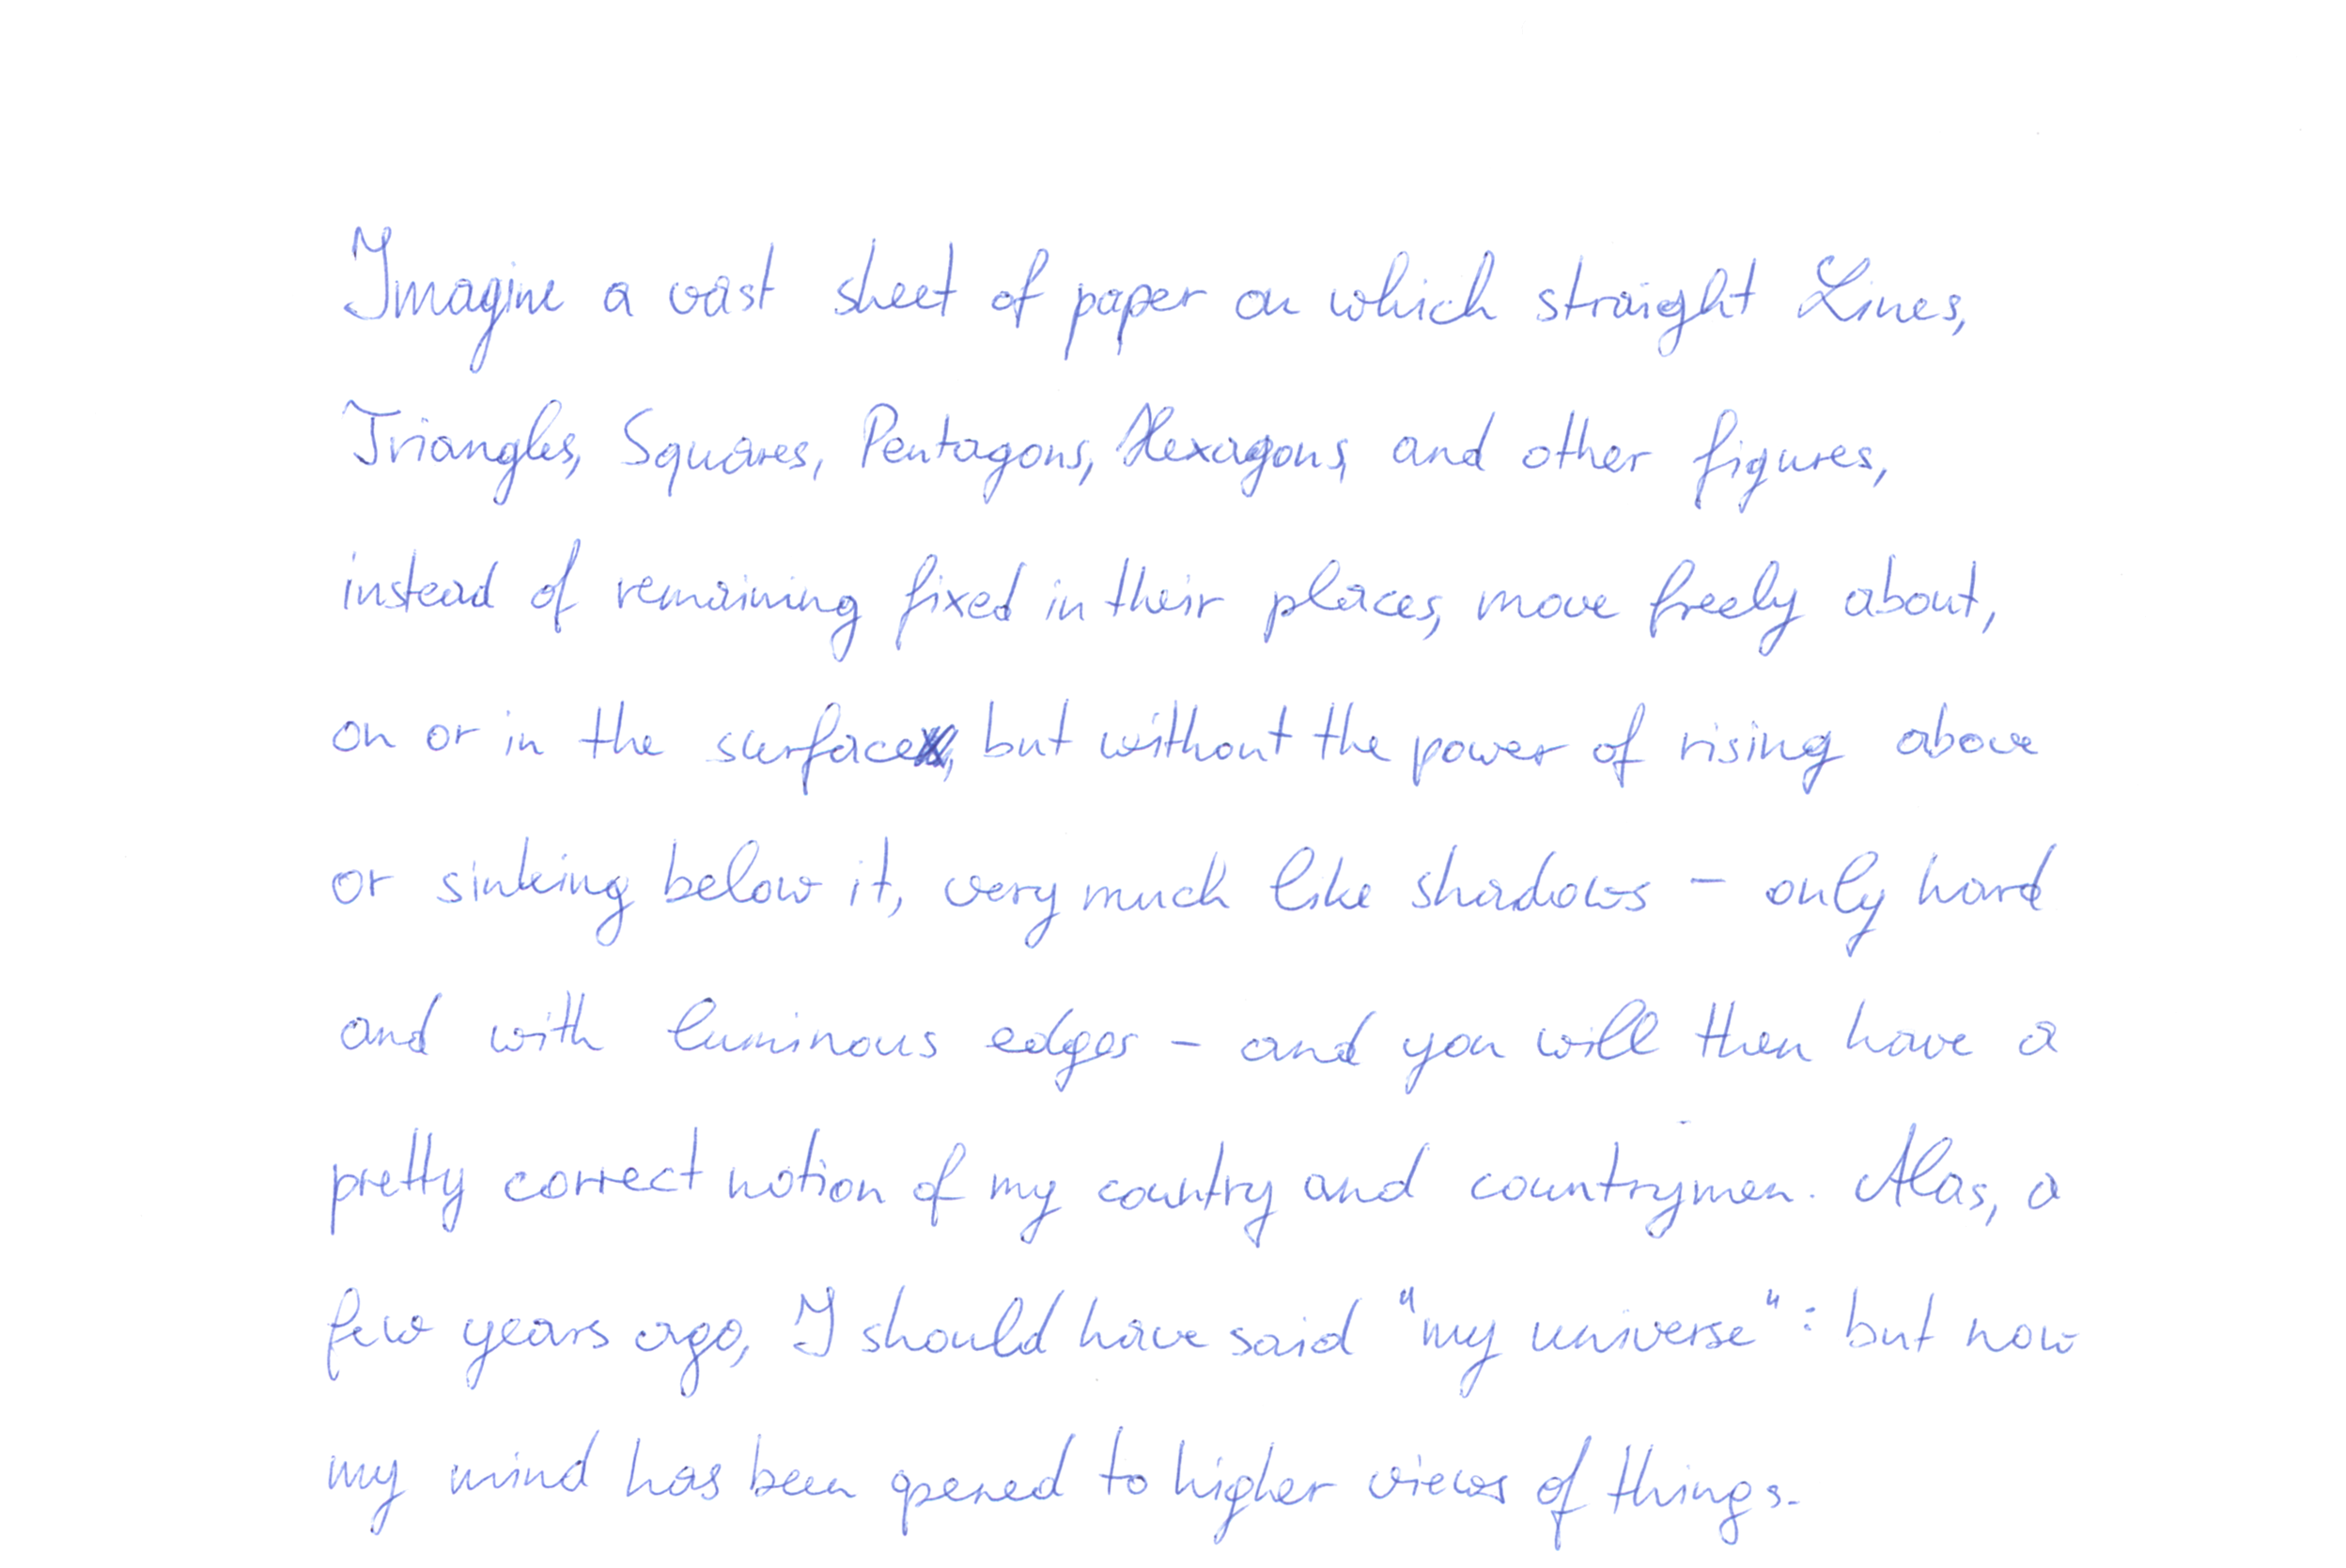 Imagine a vast sheet of paper on which straight Lines,
Triangles, Squares, Pentagons, Hexagons, and other figures,
instead of remaining fixed in their places, move freely about,
on or in the surface, but without the power of rising above
or sinking below it, very much like shadows - only hard
and with luminous edges - and you will then have a
pretty correct notion of my country and countrymen. Alas, a
few years ago, I should have said "my universe": but now
my mind has been opened to higher views of things.